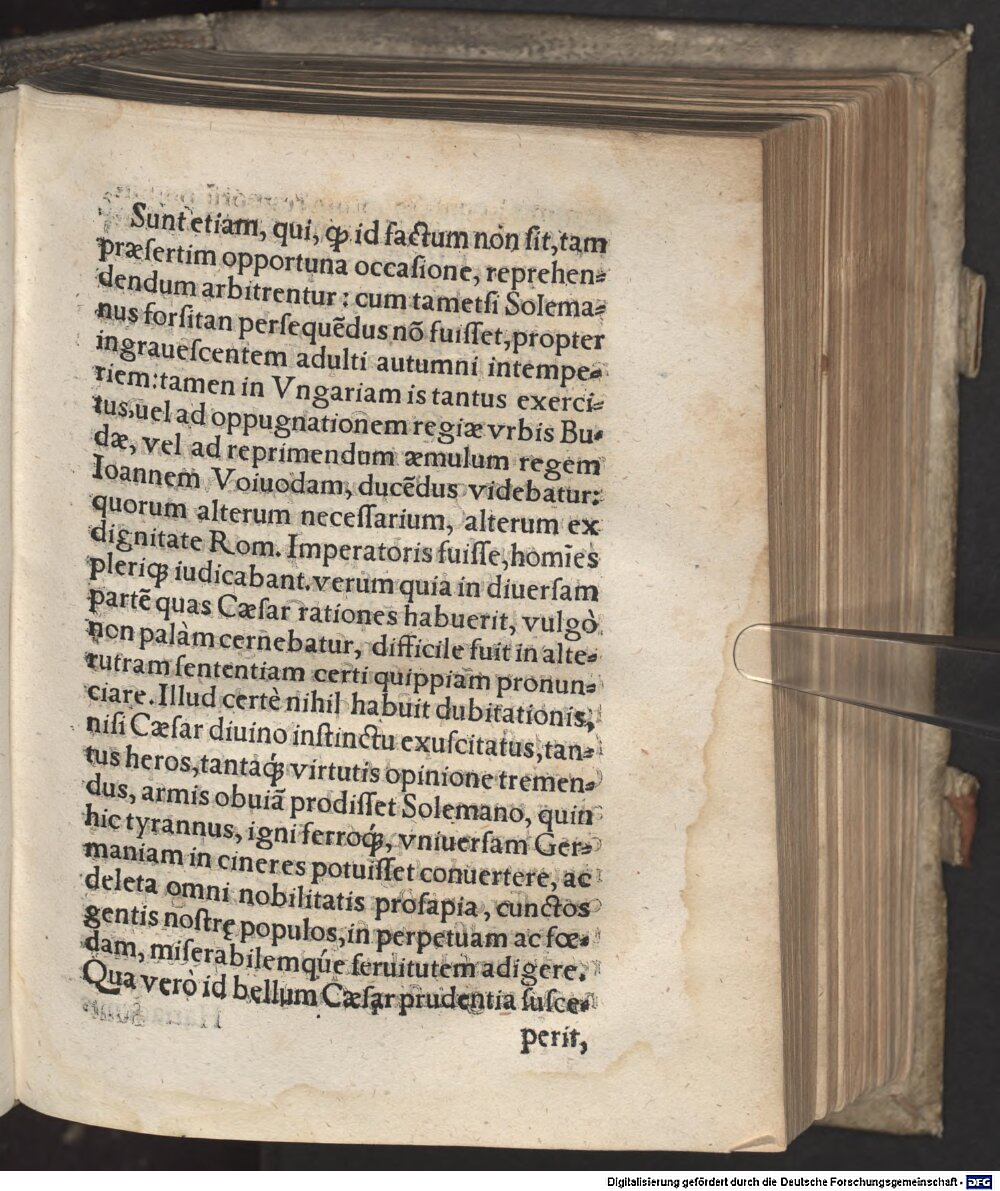 Sunt etiam, qui, ꝙ id factum non ſit, tam
præſertim opportuna occaſione, reprehen⸗
dendum arbitrentur: cum tametſi Solema⸗
nus forſitan perſequẽdus nõ fuiſſet, propter
ingraueſcentem adulti autumni intempe⸗
riem: tamen in Vngariam is tantus exerci⸗
tus, uel ad oppugnationem regiæ vrbis Bu⸗
dæ, vel ad reprimendum æmulum regem
Ioannem Voiuodam, ducẽdus videbatur:
quorum alterum neceſſarium, alterum ex
dignitate Rom. Imperatoris fuiſſe, homĩes
pleriqꝫ iudicabant. verùm quia in diuerſam
partẽ quas Cæſar rationes habuerit, vulgò
non palàm cernebatur, difficile fuit in alte⸗
rutram ſententiam certi quippiam pronun⸗
ciare. Illud certè nihil habuit dubitationis,
niſi Cæſar diuino inſtinctu exuſcitatus, tan⸗
tus heros, tantaqꝫ́ virtutis opinione tremen⸗
dus, armis obuiã prodiſſet Solemano, quin
hic tyrannus, igni ferroqꝫ́, vniuerſam Ger⸗
maniam in cineres potuiſſet conuertere, ac
deleta omni nobilitatis proſapia, cunctos
gentis noſtrę populos, in perpetuam ac fœ⸗
dam, miſerabilemqúe ſeruitutem adigere.
Qua verò id bellum Cæſar prudentia ſuſce⸗
perit,
Digitalisierung gefördert durch die Deutsche Forschungsgemeinschaft - DFG